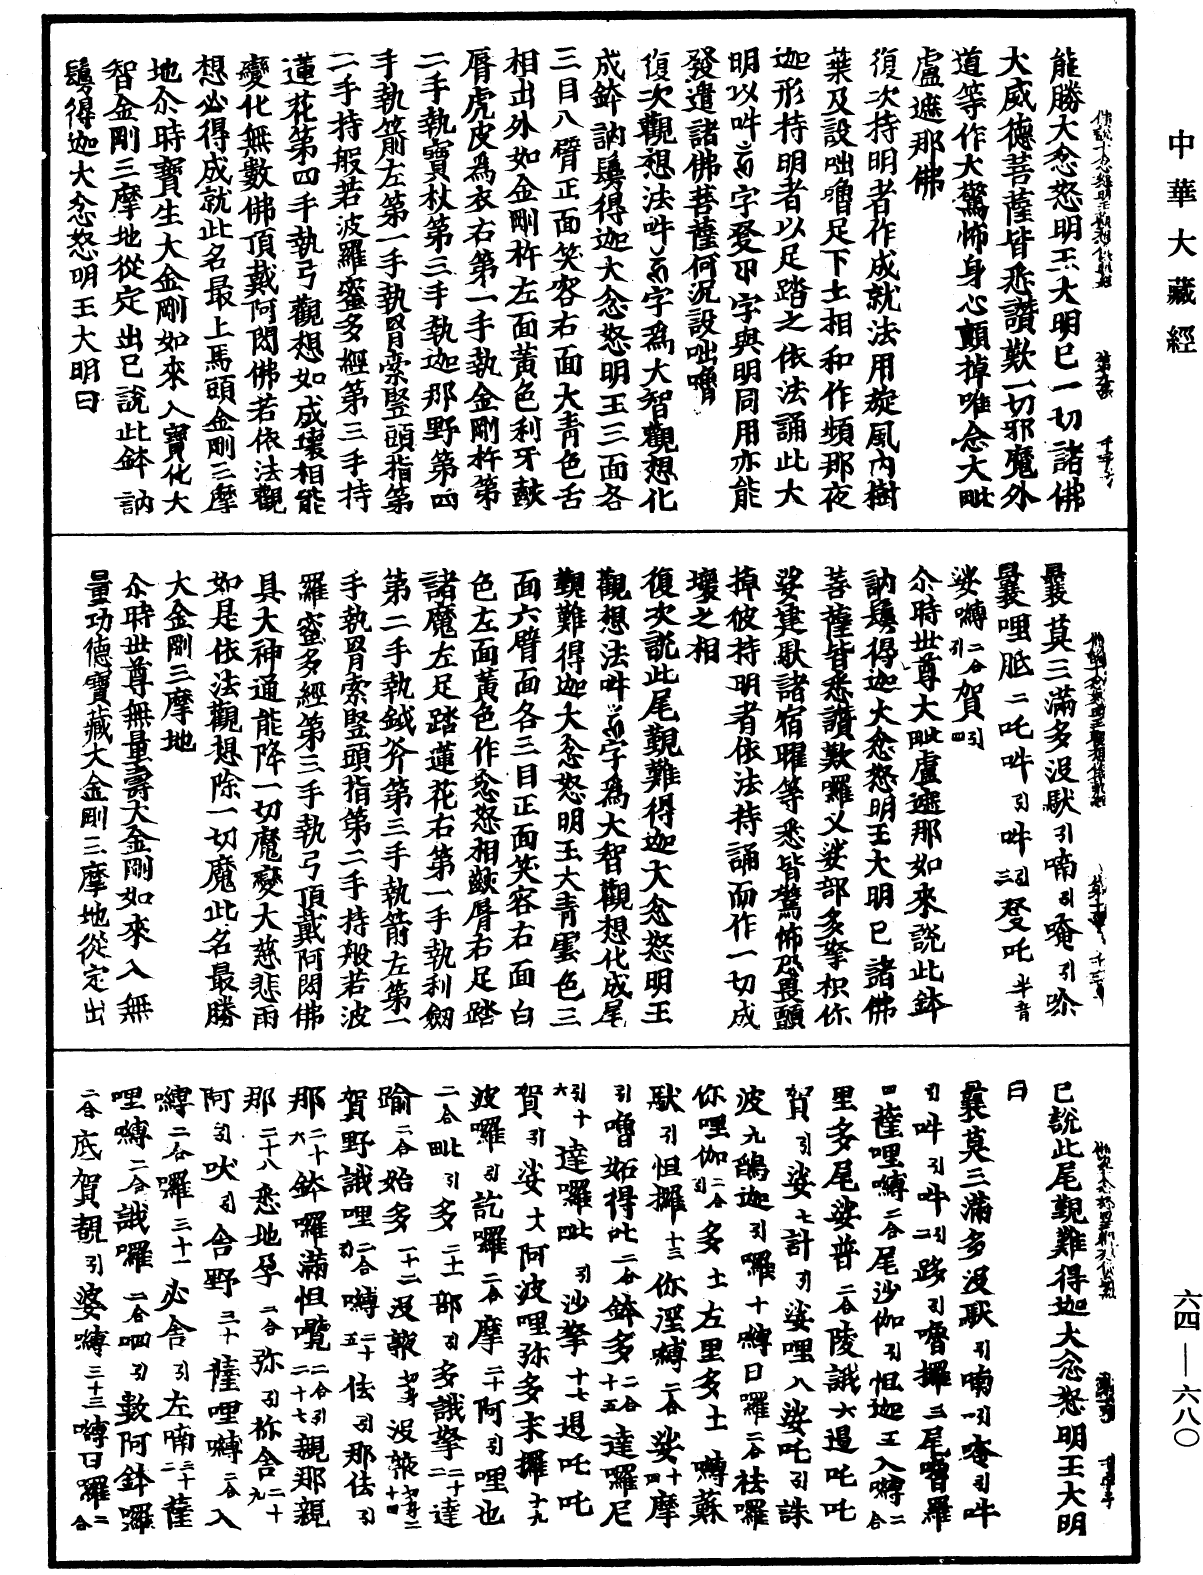 中華大藏經
能勝大忿怒明王大明已一切諸佛
大威德菩薩皆悉讚歎一切邪魔外
道等作大驚怖身心顫掉唯念大毗
盧遮那佛
復次持明者作成就法用旋風內樹
葉及設咄嚕足下土相和作頻那夜
迦形持明者以足踏之依法誦此大
明以吽字癹吒字與明同用亦能
發遣諸佛菩薩何況設咄嚕
復次觀想法吽字為大智觀想化
成鉢訥鬘得迦大忿怒明王三面各
三目八臂正面笑容右面大青色舌
相出外如金剛杵左面黃色利牙齩
脣虎皮為衣右第一手執金剛杵第
二手執寶杖第三手執迦那野第四
手執箭左第一手執羂索豎頭指第
二手持般若波羅蜜多經第三手持
蓮花第四手執弓觀想如成壞相能
變化無數佛頂戴阿閦佛若依法觀
想必得成就此名最上馬頭金剛三摩
地尒時寶生大金剛如來入寶化大
智金剛三摩地從定出已說此鉢訥
鬘得迦大忿怒明王大明曰
曩莫三滿多沒馱引喃引唵引
曩哩胝二吒吽引吽引三癹吒半音
娑嚩二合引賀引四
尒時世尊大毗盧遮那如來說此鉢
訥鬘得迦大忿怒明王大明已諸佛
菩薩皆悉讚歎囉叉娑部多拏枳你
娑建馱諸宿曜等悉皆驚怖恐畏顫
掉彼持明者依法持誦而作一切成
壞之相
復次說此尾覲難得迦大忿怒明王
觀想法吽字為大智觀想化成尾
覲難得迦大忿怒明王大青雲色三
面六臂面各三目正面笑容右面白
色左面黃色作忿怒相齩脣右足踏
諸魔左足踏蓮花右第一手執利劒
第二手執鉞斧第三手執箭左第一
手執羂索豎頭指第二手持般若波
羅蜜多經第三手執弓頂戴阿閦佛
具大神通能降一切魔變大慈悲雨
如是依法觀想除一切魔此名最勝
大金剛三摩地
尒時世尊無量壽大金剛如來入無
量功德寶藏大金剛三摩地從定出
已說此尾覲難得迦大忿怒明王大明
曰
曩莫三滿多沒馱引喃一引唵引吽
引吽引吽引二路引嚕攞三尾嚕羅
四薩哩嚩二合尾沙伽引怛迦五入嚩二合
里多尾娑普二合陵誐六遏吒吒
賀引娑七計引娑哩八娑吒引誅
波九鴟迦引囉十嚩日囉二合祛囉
你哩伽二合引多十一左里多十二嚩蘇
馱引怛攞十三你淫嚩二合娑十四摩
引嚕妬得吒二合鉢多二合十五達囉尼
引十六達囉毗引沙拏十七遏吒吒
賀引娑十八阿波哩弥多末攞十九
波囉引訖囉二合摩二十阿引哩也
二合毗引多二十一部引多誐拏二十二達
踰二合始多二十三沒䭾沒䭾二十四
賀野誐哩二合嚩二十五佉引那佉引
那二十六鉢囉滿怛覽二合引二十七親那親
那二十八悉地孕二合弥引祢舍二十九
阿引吠引舍野三十薩哩嚩二合入
嚩二合囉三十一必舍引左喃三十二薩
哩嚩二合誐囉二合呬引數阿鉢囉
二合底賀覩引婆嚩三十三嚩日囉二合
六四—六八〇